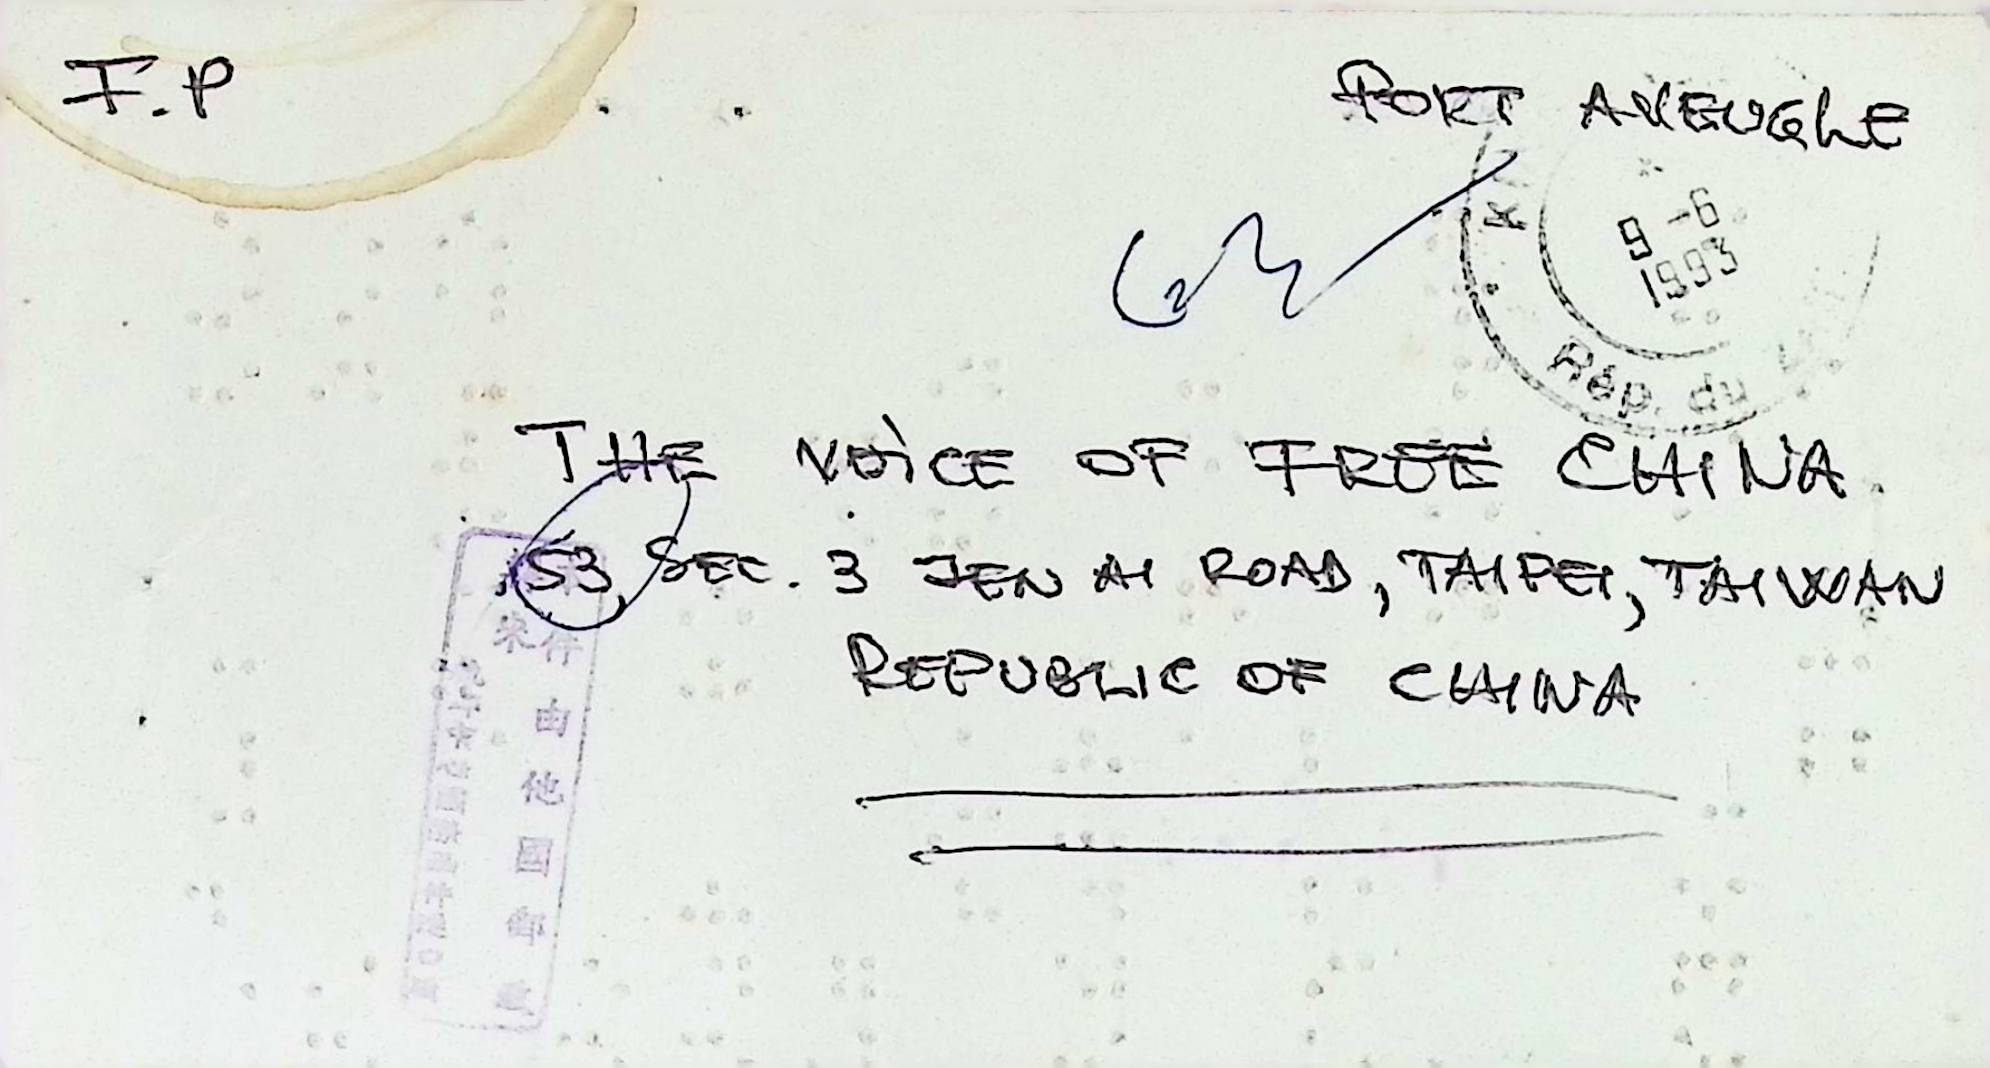 F.P
PORT AVEUGLE
9-6
1993
Rép. du
THE VOICE OF FREE CHINA
53, SEC. 3 JEN AI ROAD, TAIPEI, TAIWAN
REPUBLIC OF CHINA
由他國郵